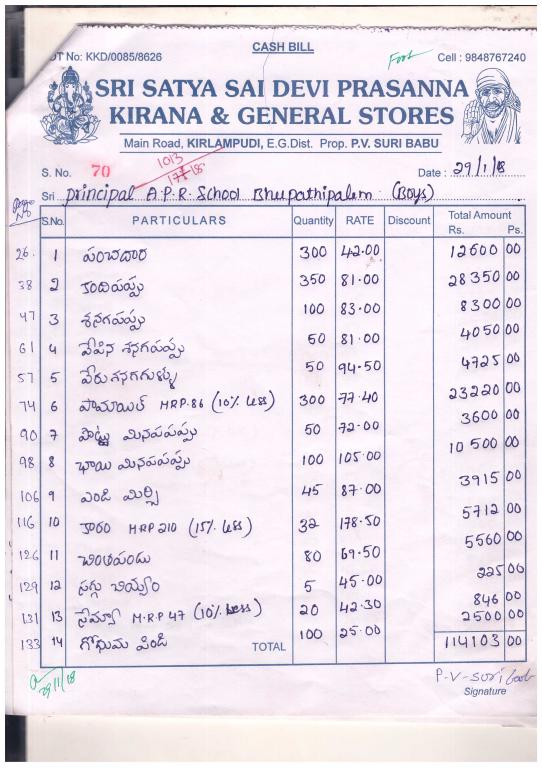 CASH BILL
OT No: KKD/0085/8626
Cell : 9848767240
SRI SATYA SAI DEVI PRASANNA
KIRANA & GENERAL STORES
Main Road, KIRLAMPUDI, E.G.Dist. Prop. P.V. SURI BABU
S. No. 70
1013
Date : 29/1/18
Sri principal A.P.R. School Bhupathipalem (Boys)
S.No. PARTICULARS Quantity RATE Discount Total Amount
Rs. Ps.
26. 1 పంచదార 300 42.00 12600 00
38 2 కందిపప్పు 350 81.00 28350 00
47 3 శనగపప్పు 100 83.00 8300 00
61 4 వేపిన శనగపప్పు 50 81.00 4050 00
57 5 వేరుశనగగుళ్ళు 50 94.50 4725 00
74 6 పామాయిల్ MRP.86 (10% Less) 300 77.40 23220 00
90 7 పొట్టు మినపపప్పు 50 72.00 3600 00
98 8 ఛాయి మినపపప్పు 100 105.00 10500 00
106 9 ఎండి మిర్చి 45 87.00 3915 00
116 10 కారం MRP 210 (15% Less) 32 178.50 5712 00
126 11 చింతపండు 80 69.50 5560 00
129 12 సగ్గు బియ్యం 5 45.00 225 00
131 13 సేమ్యా M.R.P 47 (10% Less) 20 42.30 846 00
133 14 గోధుమ పిండి 100 25.00 2500 00
TOTAL 114103 00
29/1/18
P-V-Suri
Signature